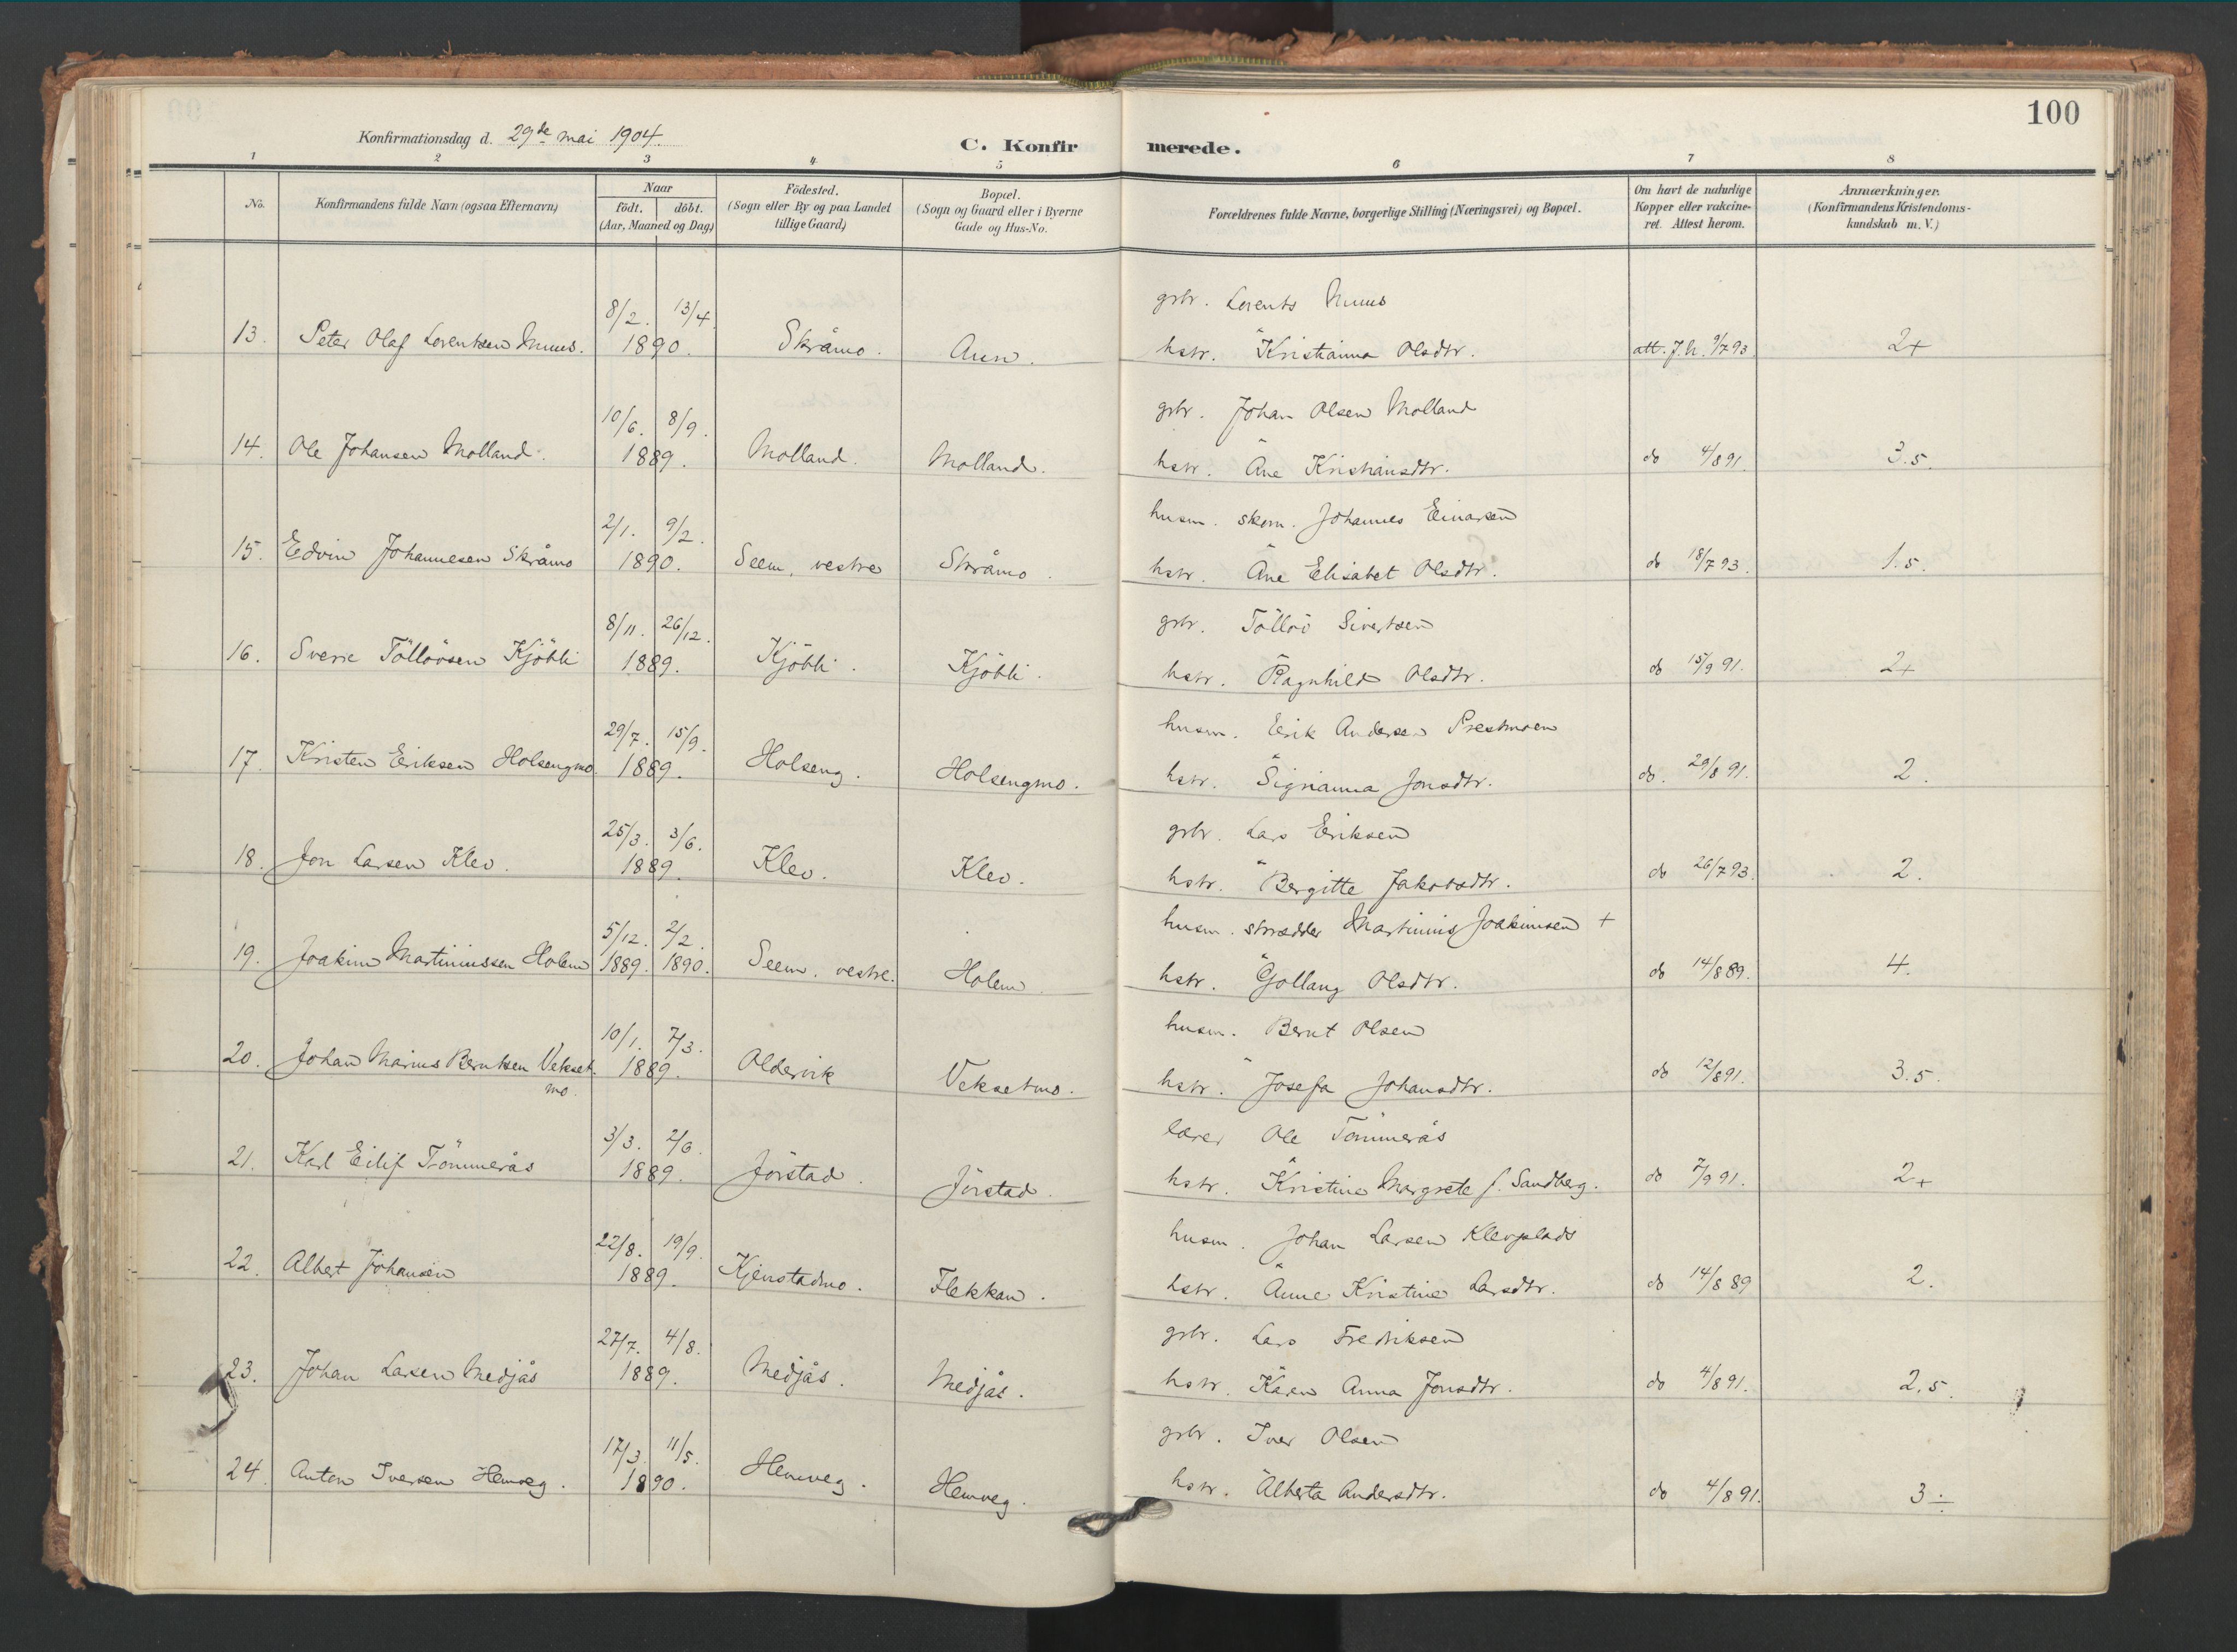 100
Konfirmationsdag d. 29de mai 1904.
C. Konfirmerede.
1 2 3 4 5 6 7 8
No.
Konfirmandens fulde Navn (ogsaa Efternavn)
Naar
födt. döbt.
(Aar, Maaned og Dag)
Födested.
(Sogn eller By og paa Landet
tillige Gaard)
Bopæl.
(Sogn og Gaard eller i Byerne
Gade og Hus-No.
Forældrenes fulde Navne, borgerlige Stilling (Næringsvei) og Bopæl.
Om havt de naturlige
Kopper eller vakcine-
ret. Attest herom.
Anmærkninger.
(Konfirmandens Kristendoms-
kundskab m. V.)
8/2. 13/4 gbr. Lorents Muus
13. Peter Olaf Lorentsen Muus. 1890. Skråmo. Aun. hstr. Kristianna Olsdtr. att. J.h. 9/7 93 2+
10/6. 8/9. gbr. Johan Olsen Molland
14. Ole Johansen Molland. 1889. Molland. Molland. hstr. Ane Kristiansdtr. do 4/8 91. 3.5.
2/1. 9/2. husm. skom. Johannes Einarsen
15. Edvin Johannesen Skråmo 1890. Seem, vestre Skråmo. hstr. Ane Elisabet Olsdtr. do 18/7 93. 1.5.
8/11. 26/12. gbr. Tölløv Sivertsen
16. Sverre Tölløvsen Kjöbli 1889. Kjöbli. Kjöbli. hstr. Ragnhild Olsdtr. do 15/9 91. 2+
29/7. 15/9. husm. Erik Andersen Prestmoen
17. Kristen Eriksen Holsengmo 1889. Holseng. Holsengmo. hstr. Sigrianna Jonsdtr. do. 29/8 91. 2.
25/3. 3/6. gbr. Lars Eriksen
18. Jon Larsen Klev. 1889. Klev. Klev. hstr. Bergitte Jakobsdtr. do 26/7 93. 2.
5/12. 2/2. husm. skrædder Martinius Joakimsen +
19. Joakim Martiniussen Holem 1889. 1890. Seem, vestre. Holem hstr. Gollaug Olsdtr. do 14/8 89. 4.
10/1. 7/3. husm. Bernt Olsen
20. Johan Marius Berntsen Vekset- 1889. Oldervik Veksetmo. hstr. Josefa Johansdtr. do 12/8 91. 3.5.
mo.
3/3. 2/6. lærer Ole Tömmerås
21. Karl Eilif Tömmerås 1889. Jörstad. Jörstad. hstr. Kristine Margrete f. Sandberg. do 7/9 91. 2+
22/8. 19/9. husm. Johan Larsen Klevplads
22. Albert Johansen 1889. Kjenstadmo. Flekkan. hstr. Anne Kristine Larsdtr. do 14/8 89 2.
27/7. 4/8. gbr. Lars Fredriksen
23. Johan Larsen Medjås 1889. Medjås. Medjås. hstr. Karen Anna Jonsdtr. do 4/8 91. 2.5.
17/3. 11/5. gbr. Iver Olsen
24. Anton Iversen Hemveg. 1890. Hemveg. Hemveg. hstr. Alberta Andersdtr. do 4/8 91. 3÷